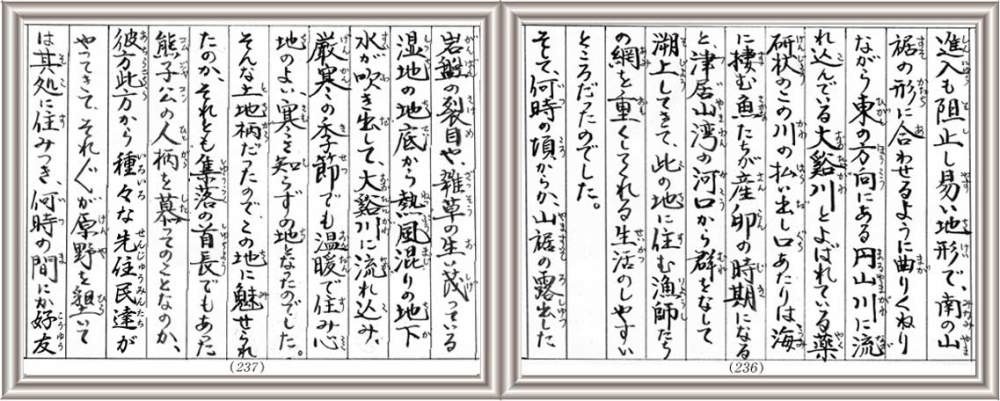 進入も阻止し易い地形で、南の山
裾の形に合わせるように曲りくねり
ながら東の方向にある円山川に流
れ込んでいる大谿川とよばれている薬
研状のこの川の払い出し口あたりは海
に棲む魚たちが産卵の時期になる
と、津居山湾の河口から群をなして
溯上してきて、此の地に住む漁師たち
の網を重くしてくれる生活のしやすい
ところだったのでした。
そして、何時の頃からか、山裾の露出した
(236)
岩盤の裂目や、雑草の生い茂っている
湿地の地底から熱風混りの地下
水が吹き出して、大谿川に流れ込み、
厳寒の季節でも温暖で住み心
地のよい、寒さを知らずの地となったのでした。
そんな土地柄だったので、この地に魅せられ
たのか、それとも集落の首長でもあった
熊子公の人柄を慕ってのことなのか、
彼方此方から種々な先住民達が
やってきて、それ〴〵が原野を墾いて
は其処に住みつき、何時の間にか好友
(237)